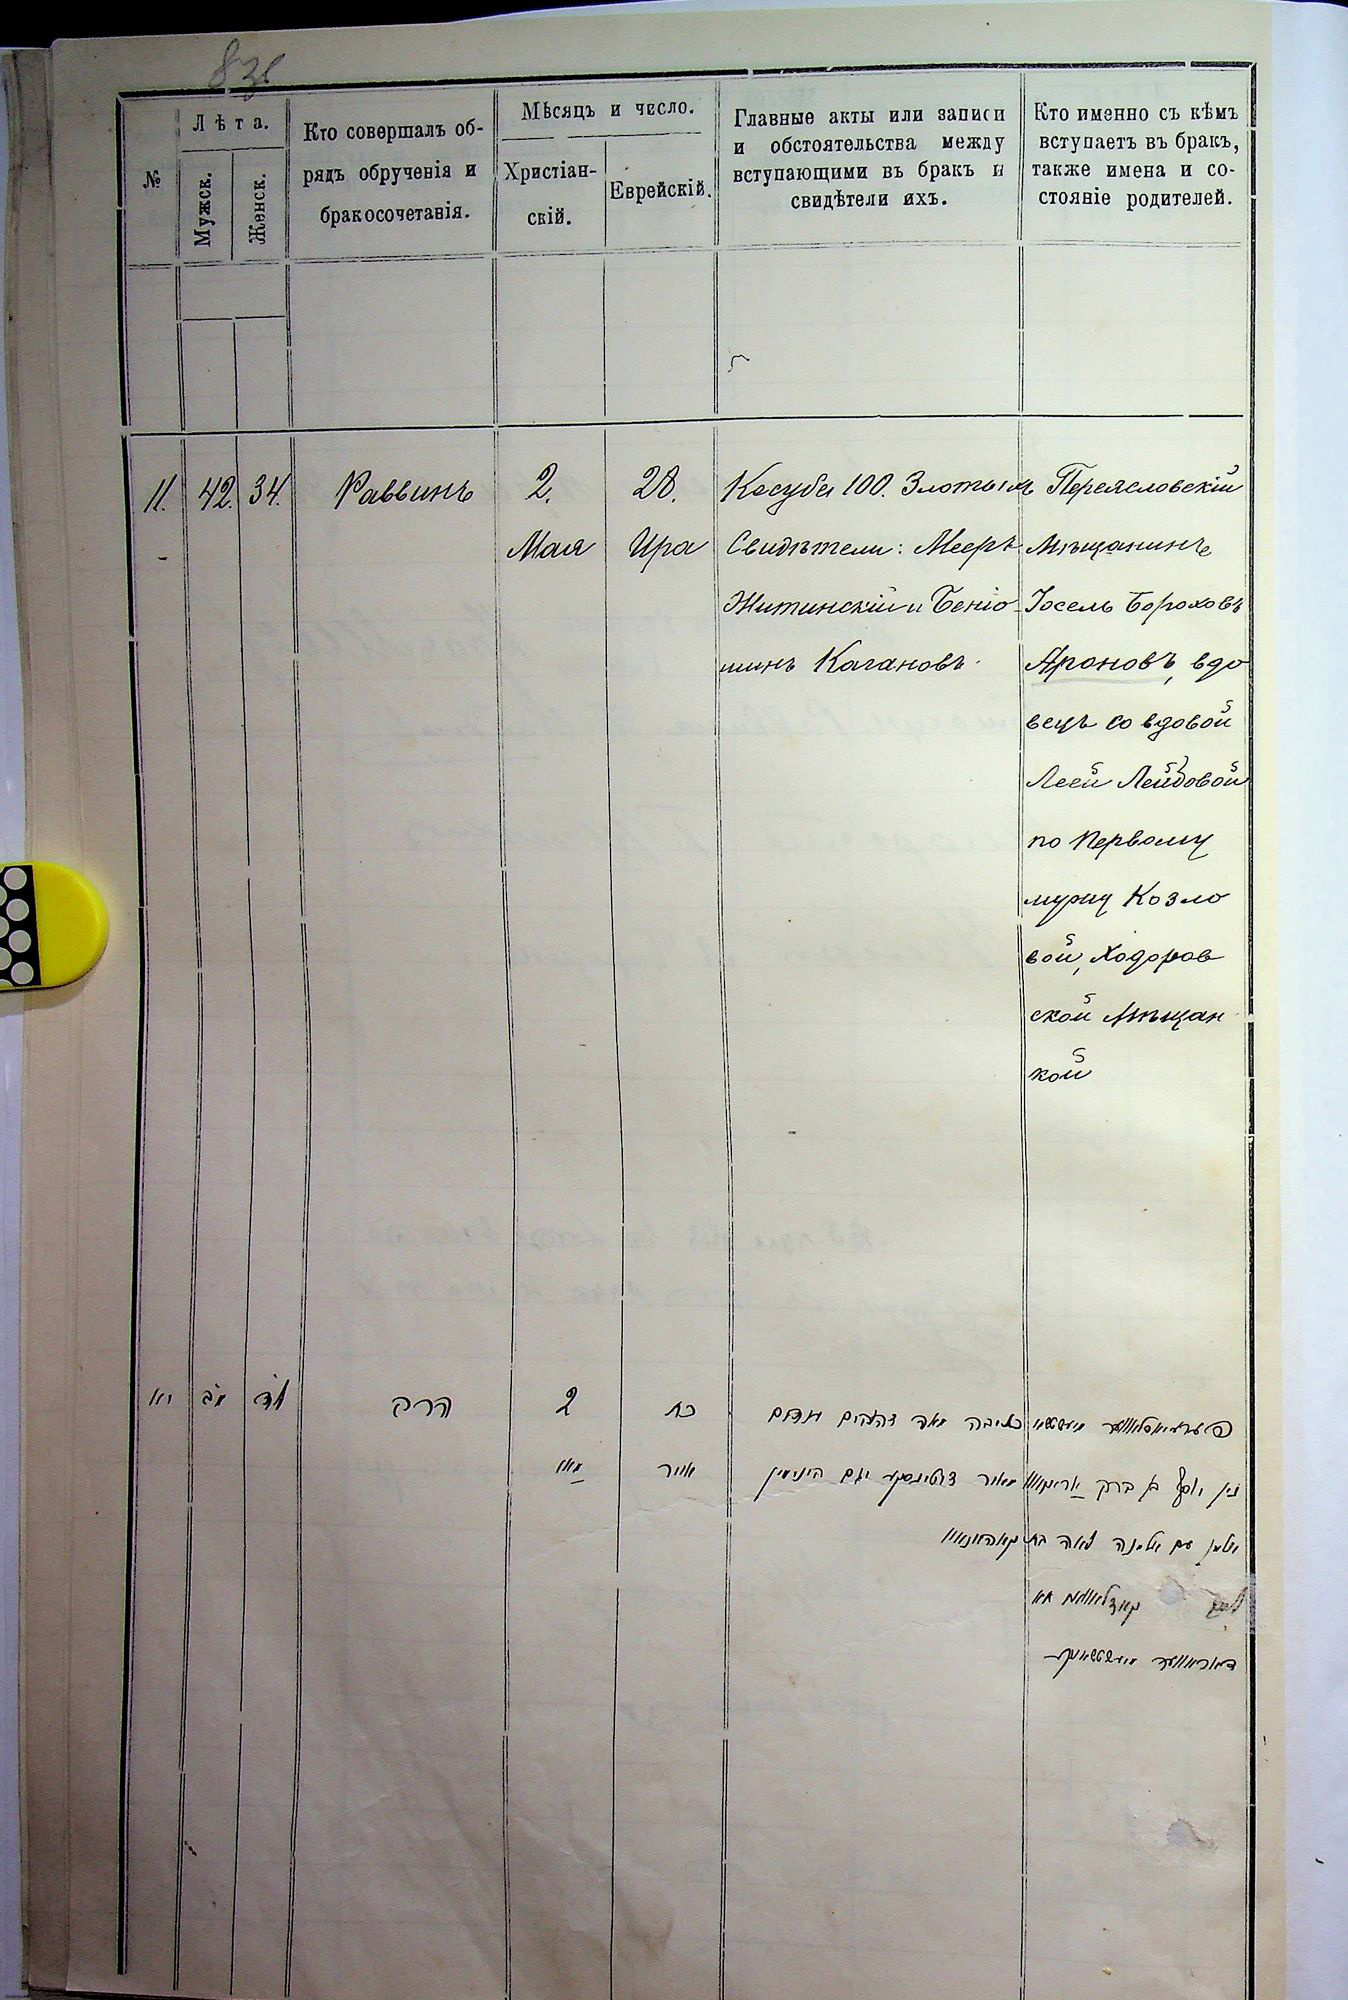 №
Лѣта.
Мужск.
Женск.
Кто совершалъ об-
рядъ обрученія и
бракосочетанія.
Мѣсяцъ и число.
Христіан-
скій.
Еврейскій.
Главные акты или записи
и обстоятельства между
вступающими въ бракъ и
свидѣтели ихъ.
Кто именно съ кѣмъ
вступаетъ въ бракъ,
также имена и со-
стояніе родителей.
11.
42.
34.
Раввинъ
2.
Мая
28.
Ира
Кесуба 100. Злотымъ
Свидѣтели: Мееръ
Житинскій и Беніо-
минъ Кагановъ.
Переясловскій
Мѣщанинъ
Іосель Бороховъ
Ароновъ, вдо
вецъ со вдовой
Леей Лейбовой
по первому
мужу Козло
вой, Ходоров
ской Мѣщан
кой
יא
מב
לד
הרב
2
מאי
כח
אייר
כתיבה מאה זהובים
מאיר
בנימין
יוסף בן ברוך
אלמן עם אלמנה לאה בת